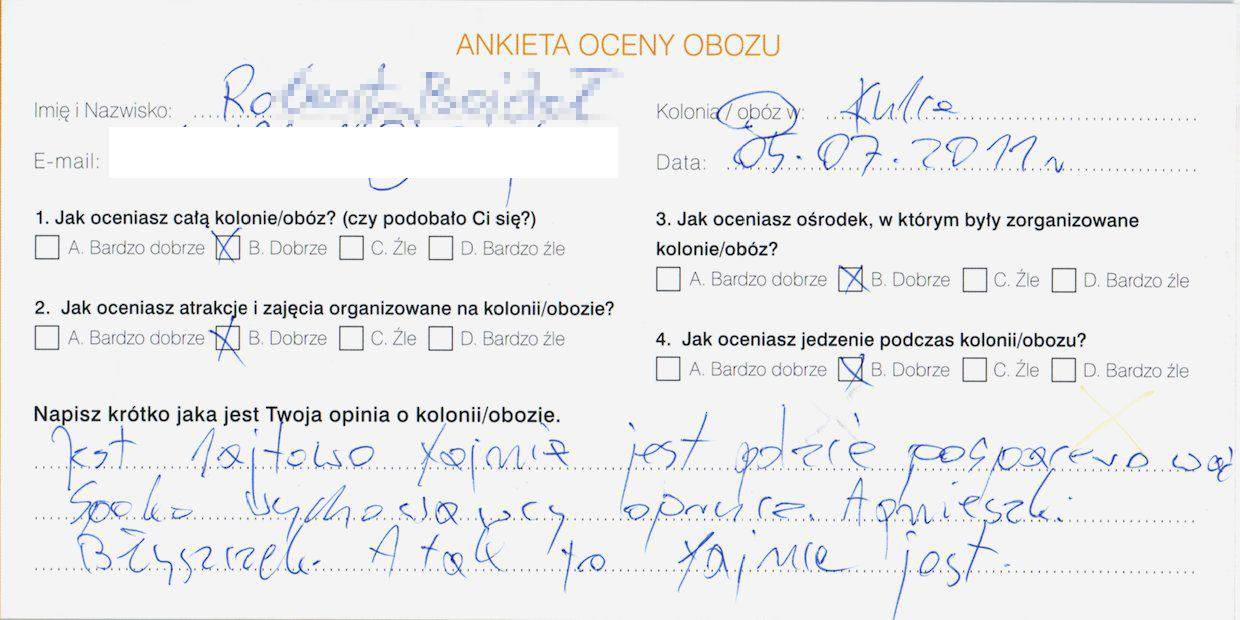 ANKIETA OCENY OBOZU
Imię i Nazwisko:
Kolonia / obóz w: Kulce
E-mail:
Data: 05.07.2011
1. Jak oceniasz całą kolonie/obóz? (czy podobało Ci się?)
A. Bardzo dobrze B. Dobrze C. Źle D. Bardzo źle
2. Jak oceniasz atrakcje i zajęcia organizowane na kolonii/obozie?
A. Bardzo dobrze B. Dobrze C. Źle D. Bardzo źle
3. Jak oceniasz ośrodek, w którym były zorganizowane
kolonie/obóz?
A. Bardzo dobrze B. Dobrze C. Źle D. Bardzo źle
4. Jak oceniasz jedzenie podczas kolonii/obozu?
A. Bardzo dobrze B. Dobrze C. Źle D. Bardzo źle
Napisz krótko jaka jest Twoja opinia o kolonii/obozie.
Jest lajtowo fajnie jest gdzie pospacerować
Spoko wychowawcy oprucz Agnieszki
Błyszczek. A tak to fajnie jest.